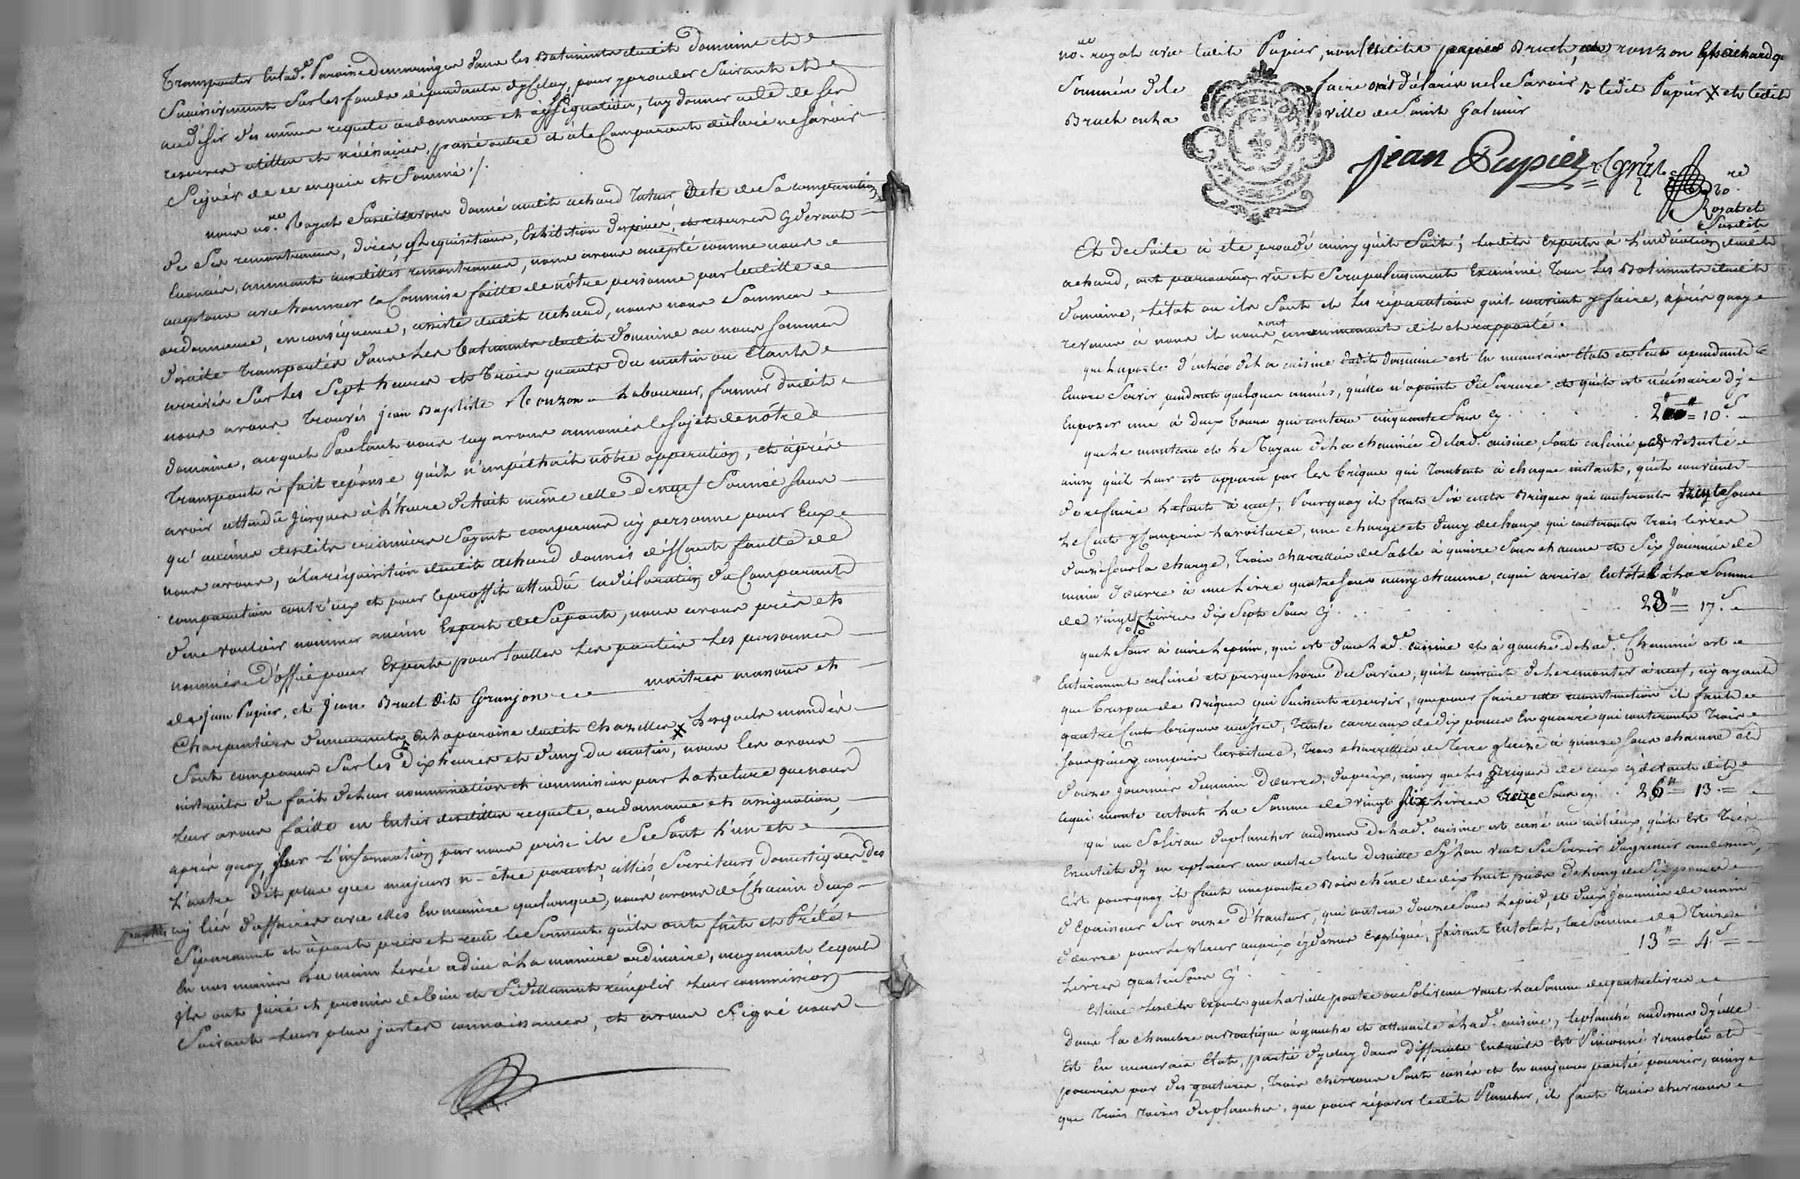 Transporter en lad.e Paroisse dans les Batiments dudit Domaine et
Suivamment sur les fonds dépendants d'Iceluy, pour y proceder suivant et
au desir des même requete ordonnance et assignation, luy donner acte de ses
reserves utilles et nécéssaires, passé outre et a le Comparant déclaré ne sçavoir
Signer de ce enquis et Sommé ./.
nous no.re Royal Susdit avons donné audit achard acte de Sa comparution
de Ses remontrances, dires, Requisitions, Exhibition des pieces, et reserves cy devant
ordonnance, en conséquence, assisté dudit achard, nous nous Sommes
de suite transportés dans les batiments dudit domaine ou nous sommes
arrivés Sur les Sept heures et trois quarts du matin ou étants
nous avons trouvés jean Baptiste Ronzon Laboureur, fermier dudit
domaine, auquel Parlant nous luy avons annoncé le Sujet de nôtre
transport a fait réponse qu'il n'empéchait nôtre opperation, et après
avoir attendu jusques à l'heure de huit même celle de neuf Sonnée sans
qu'aucuns desdits créanciers Soyent comparus ny personne pour Eux
nous avons, à la réquisition dudit achard donnés déffaut fautte de
comparution contr'eux et pour le proffit attendu la déclaration du Comparant
de ne vouloir nommer aucun Expert de Sa part, nous avons pris et
nommés d'office pour Experts pour touttes les parties les personnes
de jean Papier, et jean Bruel dit Granjon maitres massons et
Charpentiers demeurants en la paroisse dudit Chazelles X Lesquels mandés
Sont comparus Sur les Dix heures et demy du matin, nous les avons
instruits du fait de leur nomination et commission par la lecture que nous
leur avons faitte en Entier desdittes requete, ordonnance et assignation,
après quoy, Sur L'information par nous prise ils Se Sont l'un et
L'autre dit plus que majeurs n'être parents, alliés, Serviteurs domestiques des
parties ny liés d'affaires avec elles En manière quelconque, nous avons de Chacun d'eux
Séparement et à part pris et reçu le Serment qu'ils ont fait et Prété
En nos mains La main Levée a dieu à la manière ordinaire, moyennant lequel
Ils ont juré et promis de bien et fidellement remplir Leur commission
Suivant Leurs plus justes connoissances, et avons Signé nous
no.re royal avec ledit Papier, non ledit Bruel, ronzon et achard
Sommés de le faire ont déclarés ne le Savoir ledit Papier X et ledit
Bruel en la ville de Saint Galmier
jean Papier
no.re
Royal et
Susdit
Et de Suite à été procédé ainsy qu'il Suit; Lesdits Experts à L'indication dudit
achard, ont parcourus, vû et Scrupuleusement Examiné tous Les Batiments dudit
Domaine, L'état ou ils Sont et Les réparations qu'il convient y faire, après quoy
revenus à nous ils nous ont unanimement dit et rapporté.
que la porte d'entrée de la cuisine dudit domaine est En mauvais Etat et peut cependant
Encore Servir pendant quelques années, qu'elle n'a point de Serrure et qu'il est nécéssaire d'y
En poser une à deux tours qui coutera cinquante Sous cy . . . . 2# = 10.s
que le manteau et le tuyau de la cheminée de lad.e cuisine, Sont calciné
ainsy qu'il Leur est apparu par les briques qui tombent à chaque instant, qu'il convient
de refaire le tout à neuf, Pourquoy il faut Six cents Briques qui couteront trente Sous
Le Cent y Compris la voiture, une charge et demy de chaux qui coutera Trois livres
douze Sous la charge, trois charrettées de Sable à quinze Sous chacune et Six journées de
main d'oeuvre à une Livre quatre Sous chacune, ce qui arrive En total à La Somme
de vingt Livres dix Sept Sous cy . . . 28# = 17.s
que le four à cuire Le pain, qui est dans lad.e cuisine et à gauche de lad.e Cheminée est
Entierement calciné et presque hors de Service, qu'il convient de le remonter à neuf, n'y ayant
que tres peu de Briques qui Puissent reservir, que pour faire cette reconstruction il faut
quatre Cents briques neufves, trente carreaux de dix pouces En quarré qui couteront trois
Sous piece y compris la voiture, trois charrettées de terre glaise à quinze Sous chacune et
douze journées de main d'oeuvre, du prix, ainsy que les Briques de ceux cy devant dits
ce qui monte en tout La Somme de vingt Six Livres treize Sous cy . . 26# = 13.s
qu'un Soliveau du plancher au dessus de lad.e cuisine est cassé au milieu, qu'il Est très
Essentiel d'y en replacer un autre
c'est pourquoy il faut une poutre Bois chêne de dix huit pieds de long de Six pouces
d'Epaisseur Sur onze d'hauteur, qui coutera douze Sous Le pied et deux journées de main
d'oeuvre pour Le placer au prix cy dessus Expliqué, faisant En total, La Somme de treize
Livres quatre Sous cy . . . 13# = 4.s
Estiment Lesdits Experts que la vielle poutre ou Soliveau vaut La Somme de quatre livres
dans la chambre ou Boutique à gauche et attenante à lad.e cuisine, le planché au dessus d'ycelle
Est En mauvais Etat, partie d'yceluy dans différents Endroits Est vermolu et
pourris par des gouttieres, trois chevrons Sont cassés et En majeure partie pourris, ainsy
que trois toises de plancher, que pour réparer ledit Plancher, il faut Trois chevrons